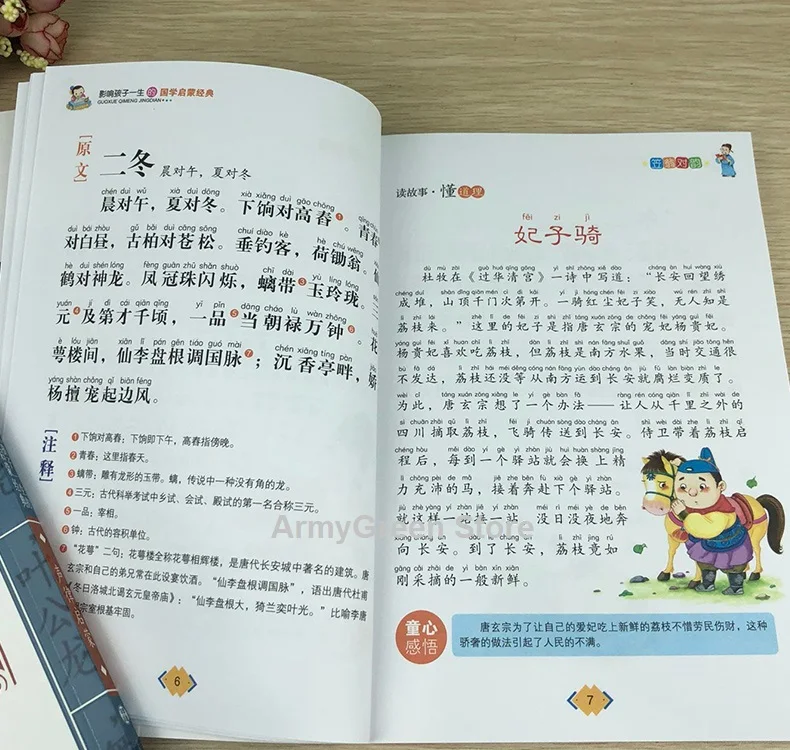 影响孩子一生的国学启蒙经典
GUOXUE QIMENG JINGDIAN
[原文]
二冬 晨对午,夏对冬
chén duì wǔ xià duì dōng xià xiǎng duì gāo chōng
晨对午,夏对冬。下饷对高舂❶。青春
duì bái zhòu gǔ bǎi duì cāng sōng chuí diào kè hè chú wēng
对白昼,古柏对苍松。垂钓客,荷锄翁。仙
hè duì shén lóng fèng guān zhū shǎn shuò chī dài yù líng lóng
鹤对神龙。凤冠珠闪烁,螭带❸玉玲珑。三
yuán jí dì cái qiān qǐng yī pǐn dāng cháo lù wàn zhōng
元❹及第才千顷,一品❺当朝禄万钟❻。花
è lóu jiān xiān lǐ pán gēn tiáo guó mài chén xiāng tíng pàn
萼楼间,仙李盘根调国脉❼;沉香亭畔,娇
yáng shàn chǒng qǐ biān fēng
杨擅宠起边风。
[注释]
❶下饷对高舂:下饷即下午,高舂指傍晚。
❷青春:这里指春天。
❸螭带:雕有龙形的玉带。螭,传说中一种没有角的龙。
❹三元:古代科举考试中乡试、会试、殿试的第一名合称三元。
❺一品:宰相。
❻钟:古代的容积单位。
❼“花萼”二句:花萼楼全称花萼相辉楼,是唐代长安城中著名的建筑。唐
玄宗和自己的弟兄常在此设宴饮酒。“仙李盘根调国脉”,语出唐代杜甫
《冬日洛城北谒玄元皇帝庙》:“仙李盘根大,猗兰奕叶光。”比喻李唐
宗室根基牢固。
6
笠翁对韵
读故事·懂道理
fēi zǐ jì
妃子骑
杜牧在《过华清宫》一诗中写道:“长安回望绣
成堆,山顶千门次第开。一骑红尘妃子笑,无人知是
荔枝来。”这里的妃子是指唐玄宗的宠妃杨贵妃。
杨贵妃喜欢吃荔枝,但荔枝是南方水果,当时交通很
不发达,荔枝还没等从南方运到长安就腐烂变质了。
为此,唐玄宗想了一个办法——让人从千里之外的
四川摘取荔枝,飞骑传送到长安。侍卫带着荔枝启
程后,每到一个驿站就会换上精
力充沛的马,接着奔赴下个驿站。
就这样一站接一站,没日没夜地奔
向长安。到了长安,荔枝竟如
刚采摘的一般新鲜。
童心
感悟
唐玄宗为了让自己的爱妃吃上新鲜的荔枝不惜劳民伤财,这种
骄奢的做法引起了人民的不满。
7
叶公龙
ArmyGreen Store